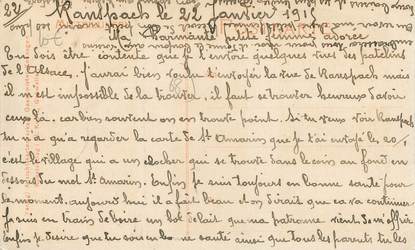 22/ Ranspach le 22 janvier 191
Ma Charmante petite femme adorée
Tu dois être contente que je t'envoie quelques vues des patelins
de l'Alsace, j'aurai bien voulu t'envoyer la vue de Ranspach mais
il m'est impossible de la trouver, il faut se trouver heureux d'avoir
ceux là, car bien souvent on en trouve point. Si tu veux voir Ranspach
tu n'as qu'a regarder la carte de St Amarin que je t'ai envoyé le 20,
c'est le village qui a un clocher qui se trouve dans le coin au fond en
dessous du mot St Amarin. Enfin je suis toujours en bonne santé pour
le moment, aujourd'hui il a fait beau et on dirait que ca va continuer
Je suis en train de boire un bol de lait que ma patronne vient de m'offrir
Enfin je désire que tu sois en bonne santé ainsi que tous les parents, tu les